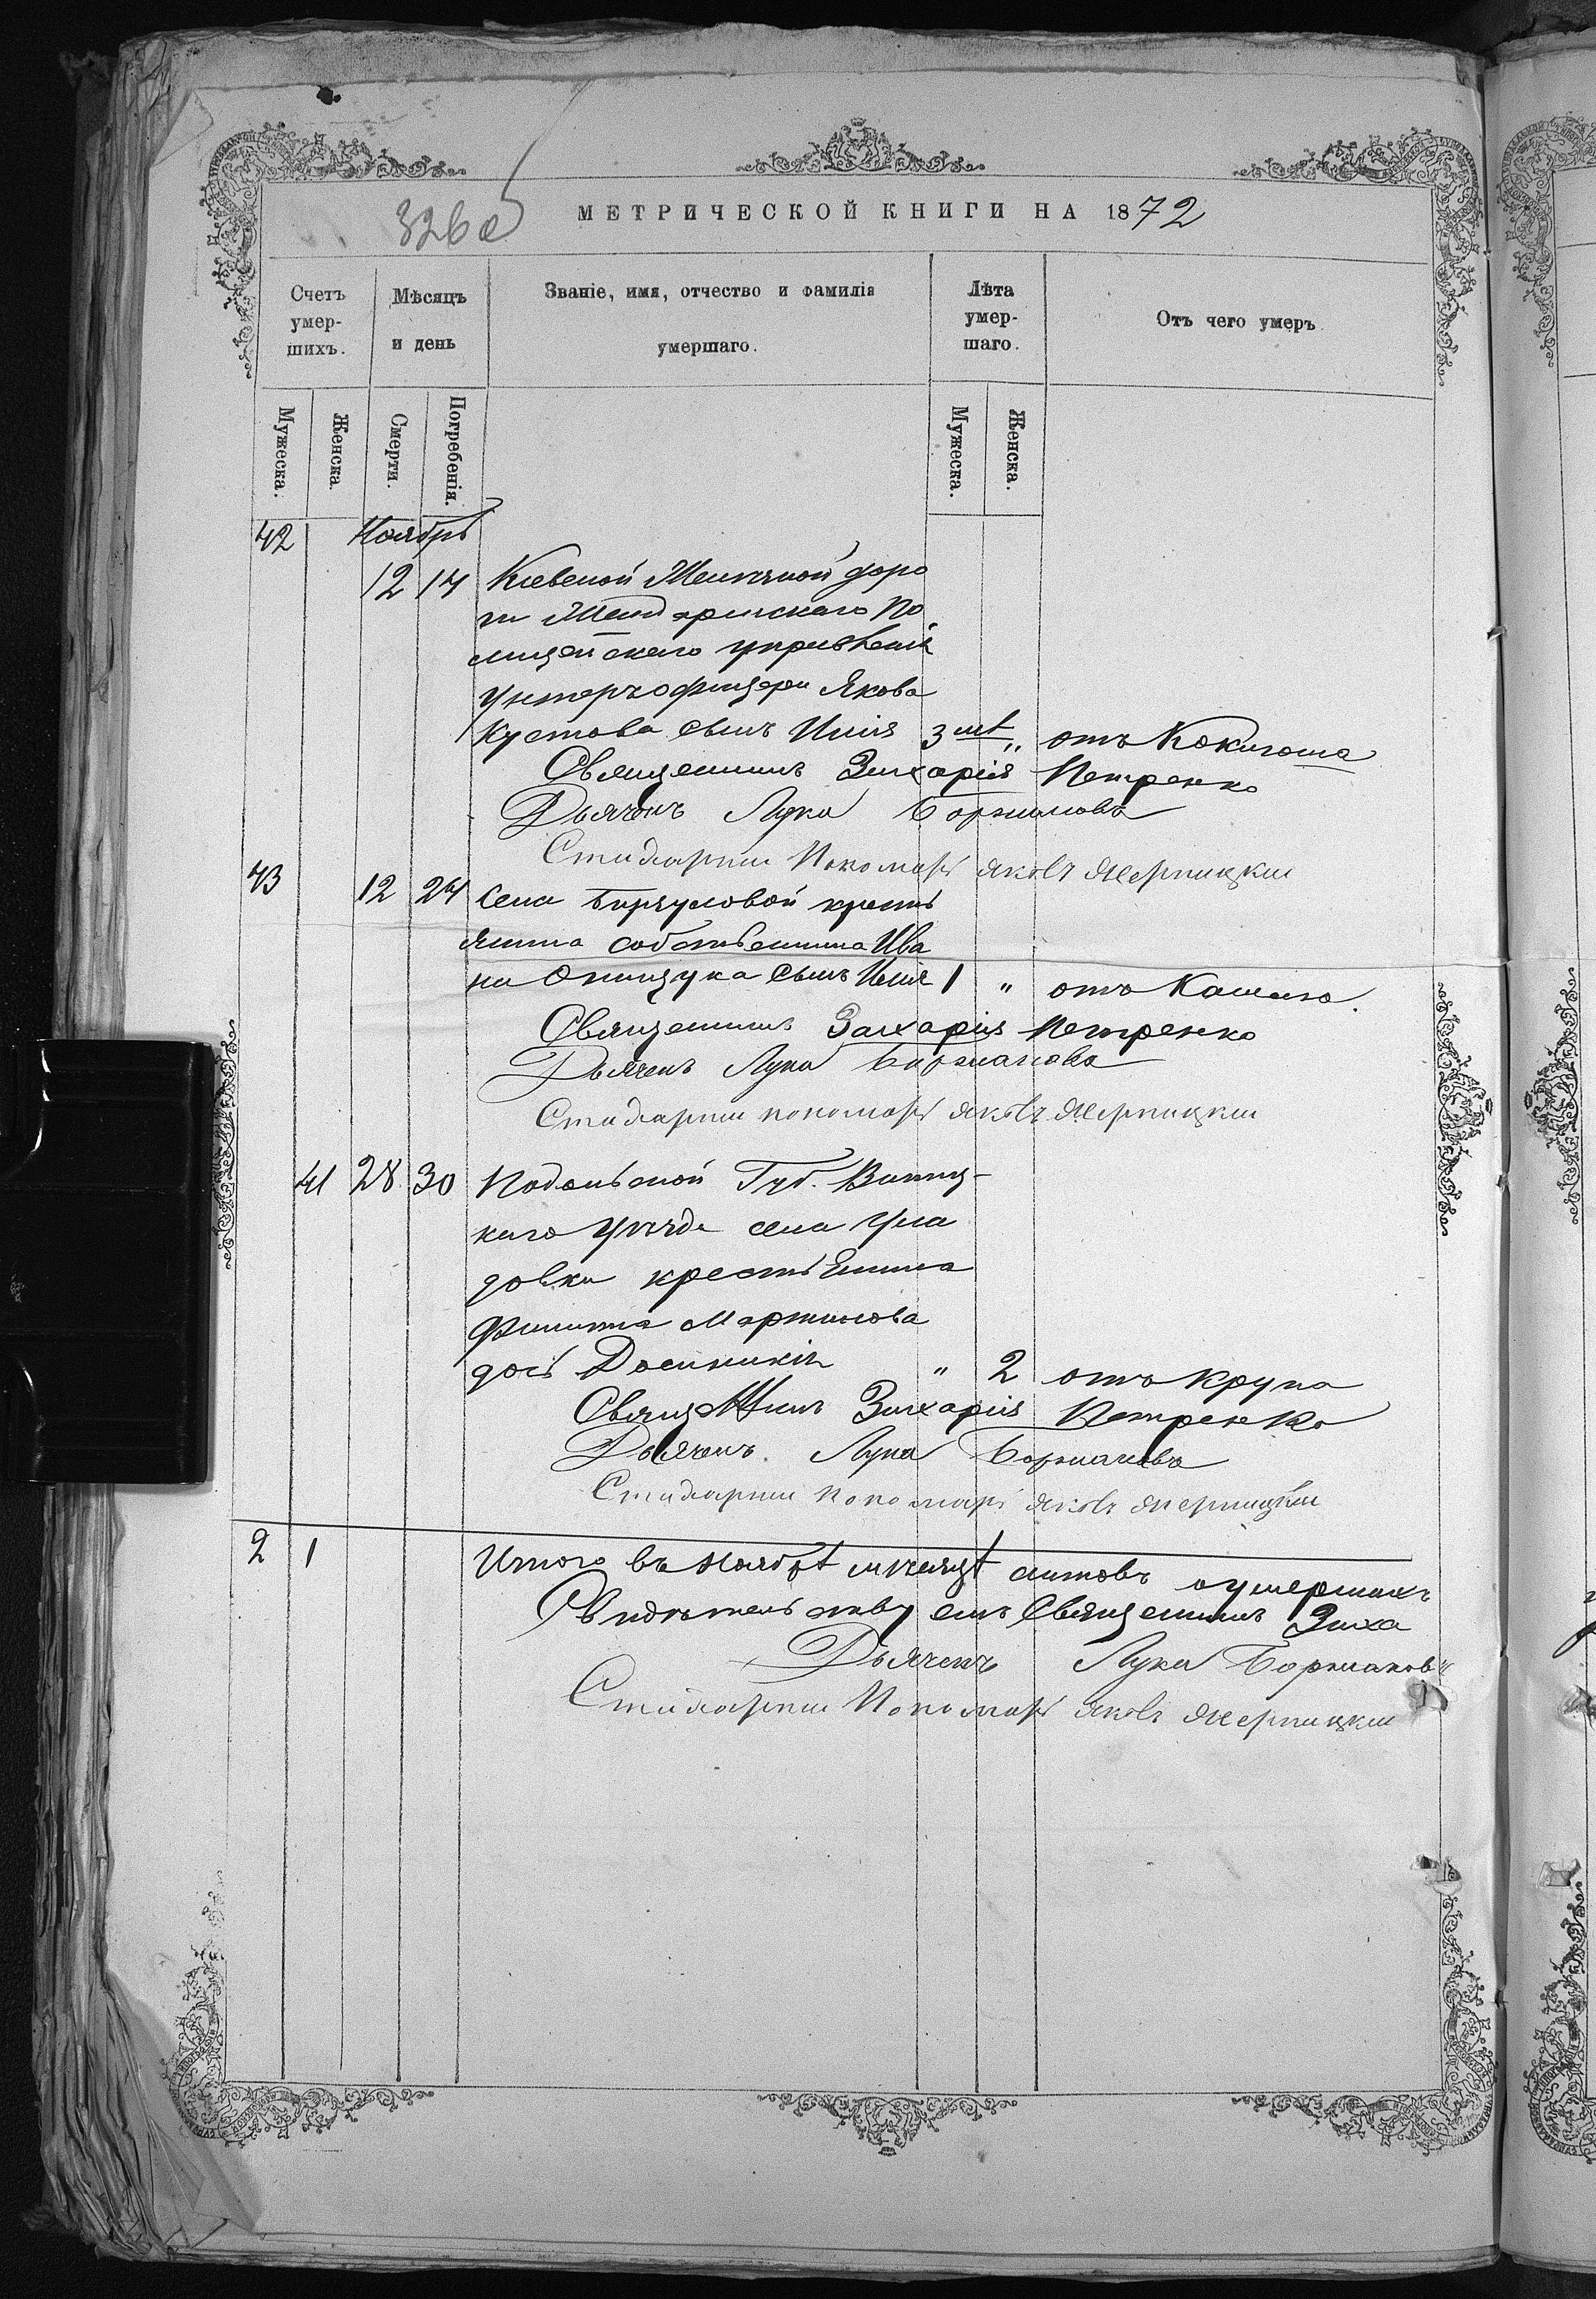 326 об
МЕТРИЧЕСКОЙ КНИГИ НА 1872
Счетъ умер- шихъ.
Мѣсяцъ и день
Званіе, имя, отчество и фамилія умершаго.
Лѣта умер- шаго.
Отъ чего умеръ
Мужеска. Женска. Смерти. Погребенія. Мужеска. Женска.
42 Ноябрь
12 14 Кіевской Желѣзной доро
ги Жандармскаго По
лицейскаго управленія
Унтеръ офицера Якова
Кустова сынъ Илія 3 лѣт " отъ Коклюша
Священникъ Захарія Петренко
Дьячекъ Лука Боржаковъ
Стихарный Пономарь Яковъ
43 12 24 Села Бирзуловой кресть
янина собственника Ива
на Онищука сынъ Илія 1 " отъ Кашля.
Священникъ Захарія Петренко
Дьячекъ Лука Боржаковъ
Стихарный пономарь Яковъ
41 28 30 Подольской Губ. Винниц-
каго Уѣзда села Ула
довки крестьянина
Филиппа Мартинова
дочь " 2 отъ Крупа
Священникъ Захарія Петренко
Дьячекъ Лука Боржаковъ
Стихарный Пономарь Яковъ
2 1 Итого въ Ноябрѣ мѣсяцѣ актовъ о умершихъ
Свидѣтельствуемъ Священникъ Заха
Дьячекъ Лука Боржаковъ
Стихарный Пономарь Яковъ